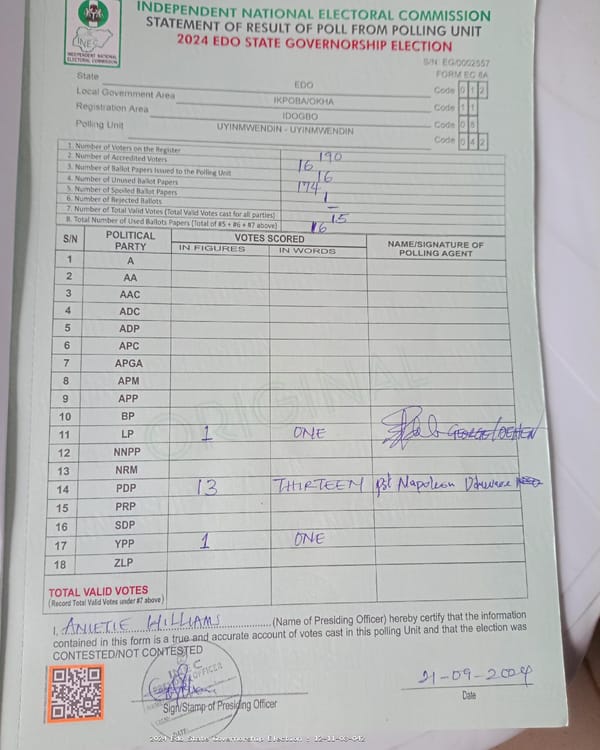 INDEPENDENT NATIONAL ELECTORAL COMMISSION
STATEMENT OF RESULT OF POLL FROM POLLING UNIT
2024 EDO STATE GOVERNORSHIP ELECTION
INEC
INDEPENDENT NATIONAL ELECTORAL COMMISSION
S/N EG/0002557
FORM EC 8A
State EDO Code 0 1 2
Local Government Area IKPOBA/OKHA Code 1 1
Registration Area IDOGBO Code 0 8
Polling Unit UYINMWENDIN - UYINMWENDIN Code 0 4 2
1. Number of Voters on the Register 190
2. Number of Accredited Voters 16
3. Number of Ballot Papers Issued to the Polling Unit
4. Number of Unused Ballot Papers 174
5. Number of Spoiled Ballot Papers 1
6. Number of Rejected Ballots –
7. Number of Total Valid Votes (Total Valid Votes cast for all parties) 15
8. Total Number of Used Ballots Papers (Total of #5 + #6 + #7 above) 16
S/N POLITICAL PARTY VOTES SCORED NAME/SIGNATURE OF POLLING AGENT
IN FIGURES IN WORDS
1 A
2 AA
3 AAC
4 ADC
5 ADP
6 APC
7 APGA
8 APM
9 APP
10 BP
11 LP 1 ONE GEORGE
12 NNPP
13 NRM
14 PDP 13 THIRTEEN Pst Napoleon
15 PRP
16 SDP
17 YPP 1 ONE
18 ZLP
ORIGINAL
TOTAL VALID VOTES
(Record Total Valid Votes under #7 above)
I, ANIETIE WILLIAMS (Name of Presiding Officer) hereby certify that the information
contained in this form is a true and accurate account of votes cast in this polling Unit and that the election was
CONTESTED/NOT CONTESTED
21-09-2024
Sign/Stamp of Presiding Officer
Date
2024 Edo State Governorship Election : 12-11-08-042